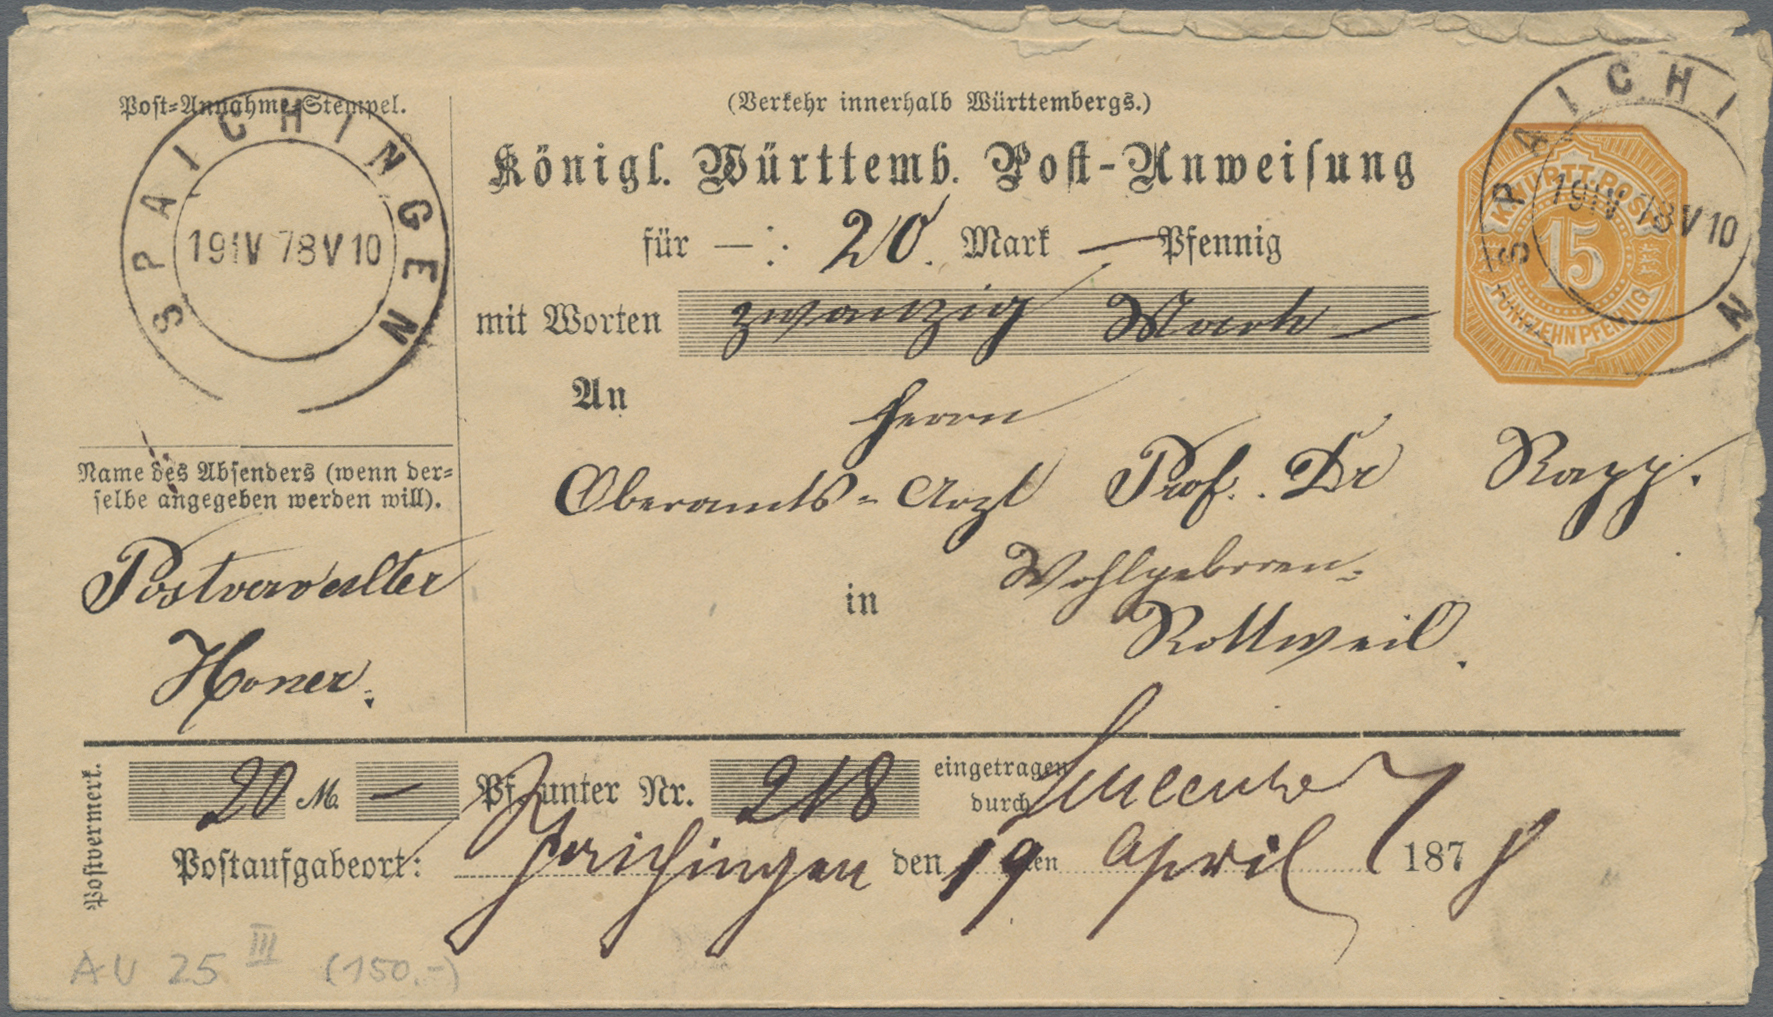 Post-Annahme-Stempel.
SPAICHINGEN
19 IV 78 V 10
(Verkehr innerhalb Württembergs.)
Königl. Württemb. Post-Anweisung
für —: 20. Mark — Pfennig
mit Worten zwanzig Mark —
K. WÜRTT. POST
15
FÜNFZEHN PFENNIG
SPAICHIN
19 IV 78 V 10
An Herrn
Oberamts-Arzt Prof. Dr Rapp.
Wohlgeboren
in Rottweil.
Name des Absenders (wenn der-
selbe angegeben werden will).
Postverwalter
Honer.
Postvermerk.
20 M. — Pf. unter Nr. 218 eingetragen
durch
Postaufgabeort: Spaichingen den 19ten April 1878
AU 25 III (150.-)